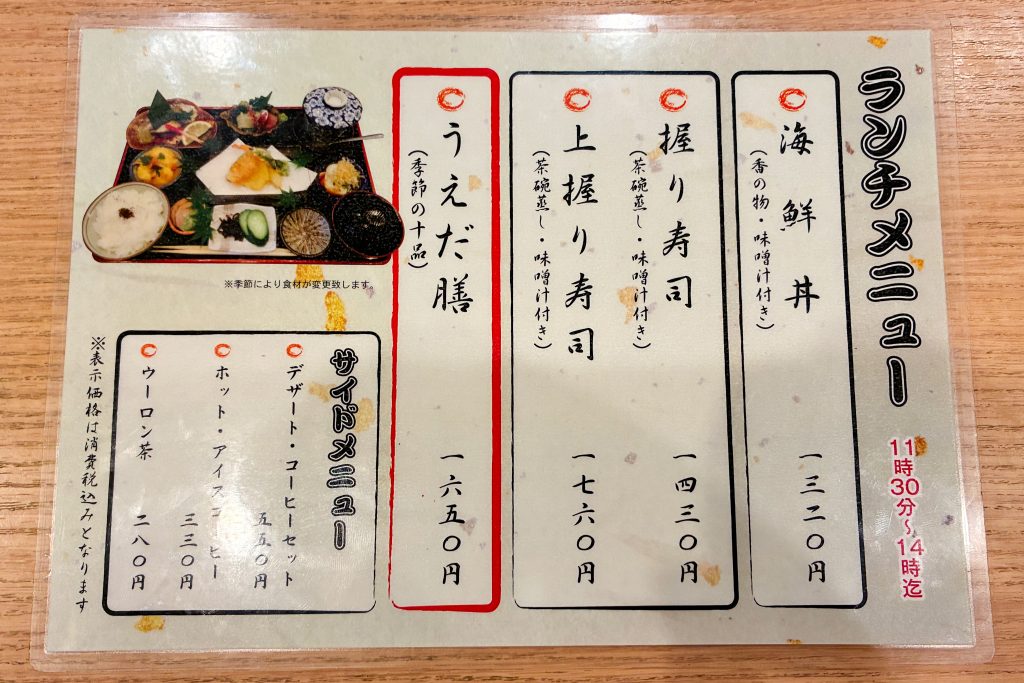 ランチメニュー
11時30分～14時迄
海鮮丼
(香の物・味噌汁付き)
一三二〇円
握り寿司
(茶碗蒸し・味噌汁付き)
一四三〇円
上握り寿司
(茶碗蒸し・味噌汁付き)
一七六〇円
うえだ膳
(季節の十品)
一六五〇円
※季節により食材が変更致します。
サイドメニュー
デザート・コーヒーセット
五五〇円
ホット・アイスコーヒー
三三〇円
ウーロン茶
二八〇円
※表示価格は消費税込みとなります